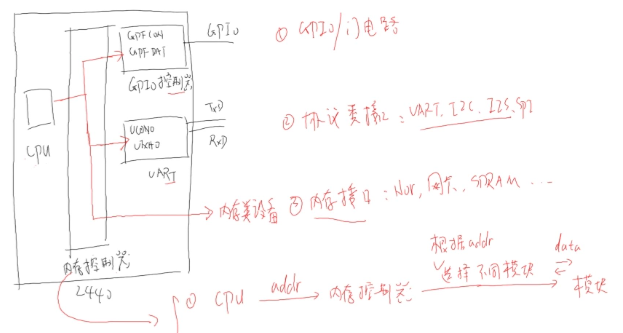 GPFCON
GPFDAT
GPIO控制器
GPIO
① GPIO/门电路
CPU
UCON0
TxD
RxD
UART
② 协议类接口：UART. I2C. I2S. SPI
内存类设备 ③ 内存接口：Nor, 网卡, SDRAM ...
内存控制器
2440
① CPU addr 内存控制器
根据addr
选择不同模块
data
模块